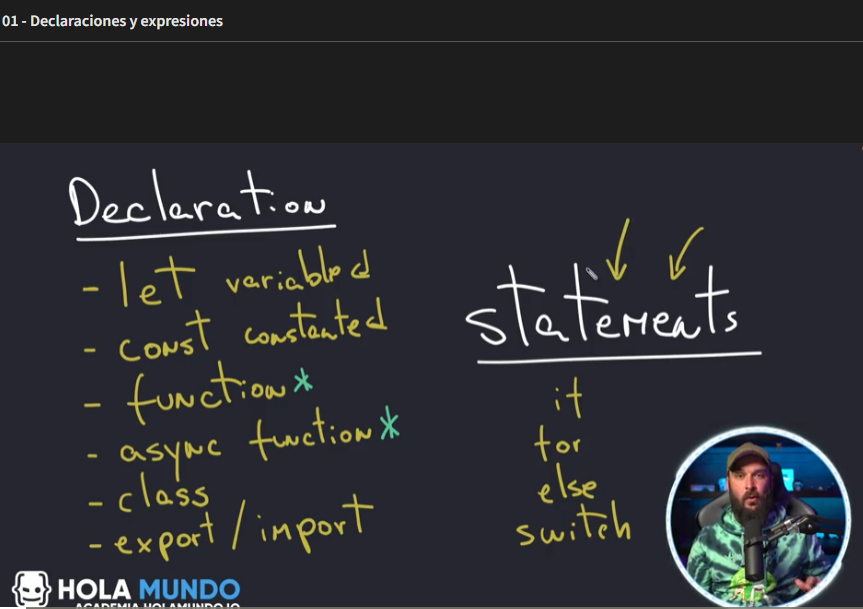 01 - Declaraciones y expresiones
Declaration
- let variable d
- const constante d
- function*
- async function*
- class
- export / import
statements
if
for
else
switch
HOLA MUNDO
ACADEMIA.HOLAMUNDO.IO